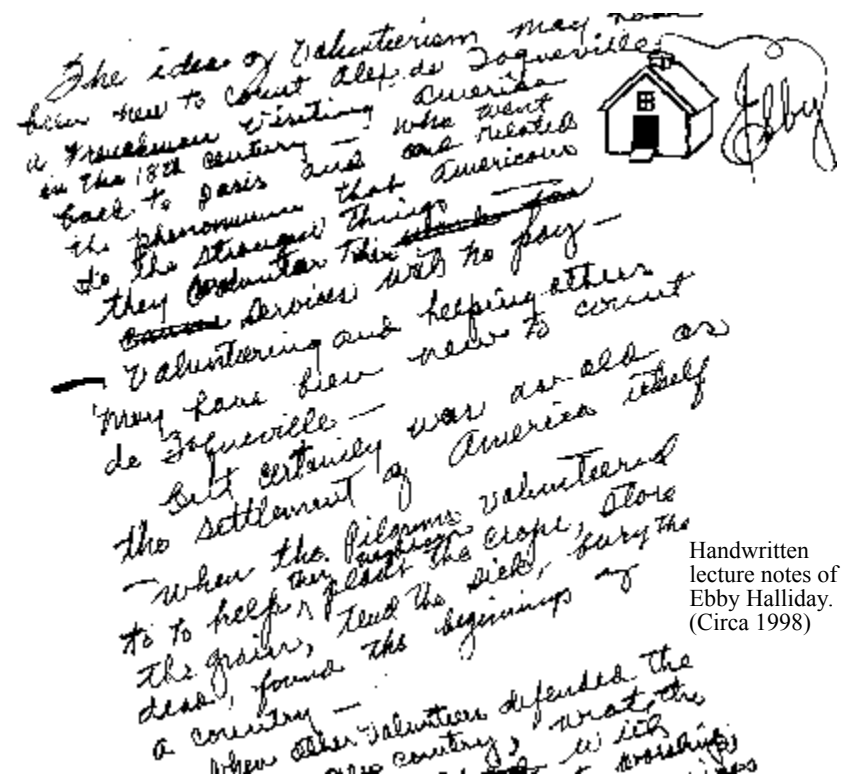 The idea of Volunteerism may have
been new to Count Alex. de Toqueville,
a Frenchman visiting America
in the 18th century — who went
back to Paris and and related
the phenomenum that Americans
do the strangest things —
they volunteer their
services with no pay —
— Volunteering and helping others
may have been new to count
de Toqueville —
But certainly was as old as
the settlement of America itself
— when the Pilgrims volunteered
to to help their neighbors plant the crops, store
the grain, tend the sick, bury the
dead, found the beginnings of
a country —
When other volunteers defended the
country, wrote the
with
worship,
Ebby
Handwritten
lecture notes of
Ebby Halliday.
(Circa 1998)